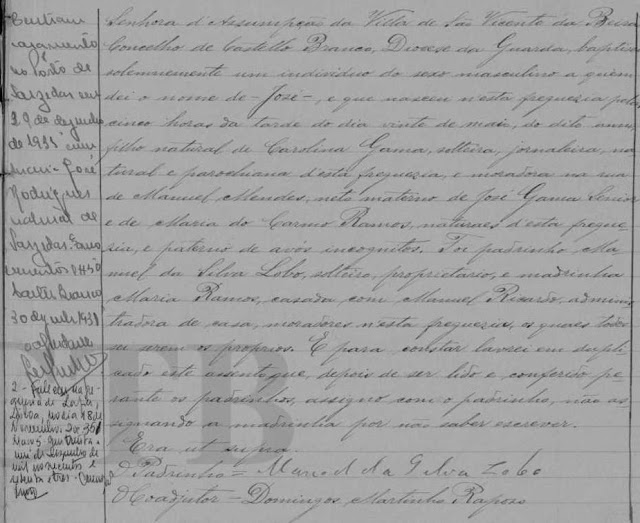 Senhora d'Assumpção da Villa de São Vicente da Beira
Concelho de Castello Branco, Diocese da Guarda, baptisei
solemnemente um individuo do sexo masculino a quem
dei o nome de - José -, e que nasceu n'esta freguezia pelas
cinco horas da tarde do dia vinte de maio, do dito anno
filho natural de Carolina Gama, solteira, jornaleira, na
tural e parochiana d'esta freguezia, e moradora na rua
de Manuel Mendes, neto materno de José Gama Senior
e de Maria do Carmo Ramos, naturaes d'esta fregue
sia, e paterno de avós incognitos. Foi padrinho Ma
nuel da Silva Lobo, solteiro, proprietario, e madrinha
Maria Ramos, casada com Manuel Ricardo, adminis
tradora de casa, moradores n'esta freguezia, os quaes todos
sei serem os proprios. E para constar lavrei em dupli
cado este assento que, depois de ser lido e conferido pe
rante os padrinhos, assigno com o padrinho, não as
signando a madrinha por não saber escrever.
Era ut supra.
O Padrinho = Manuel da Silva Lobo
O Coadjutor - Domingos Martinho Raposo
casamento
no Posto de
Sarzedas em
29 de dezembro
de 1935 com
José
Rodrigues
natural de
Sarzedas
Castelo Branco
30
2 - Faleceu na fre
guesia de
Lisboa, no dia 18
Novembro
mil novecentos e
setenta e tres